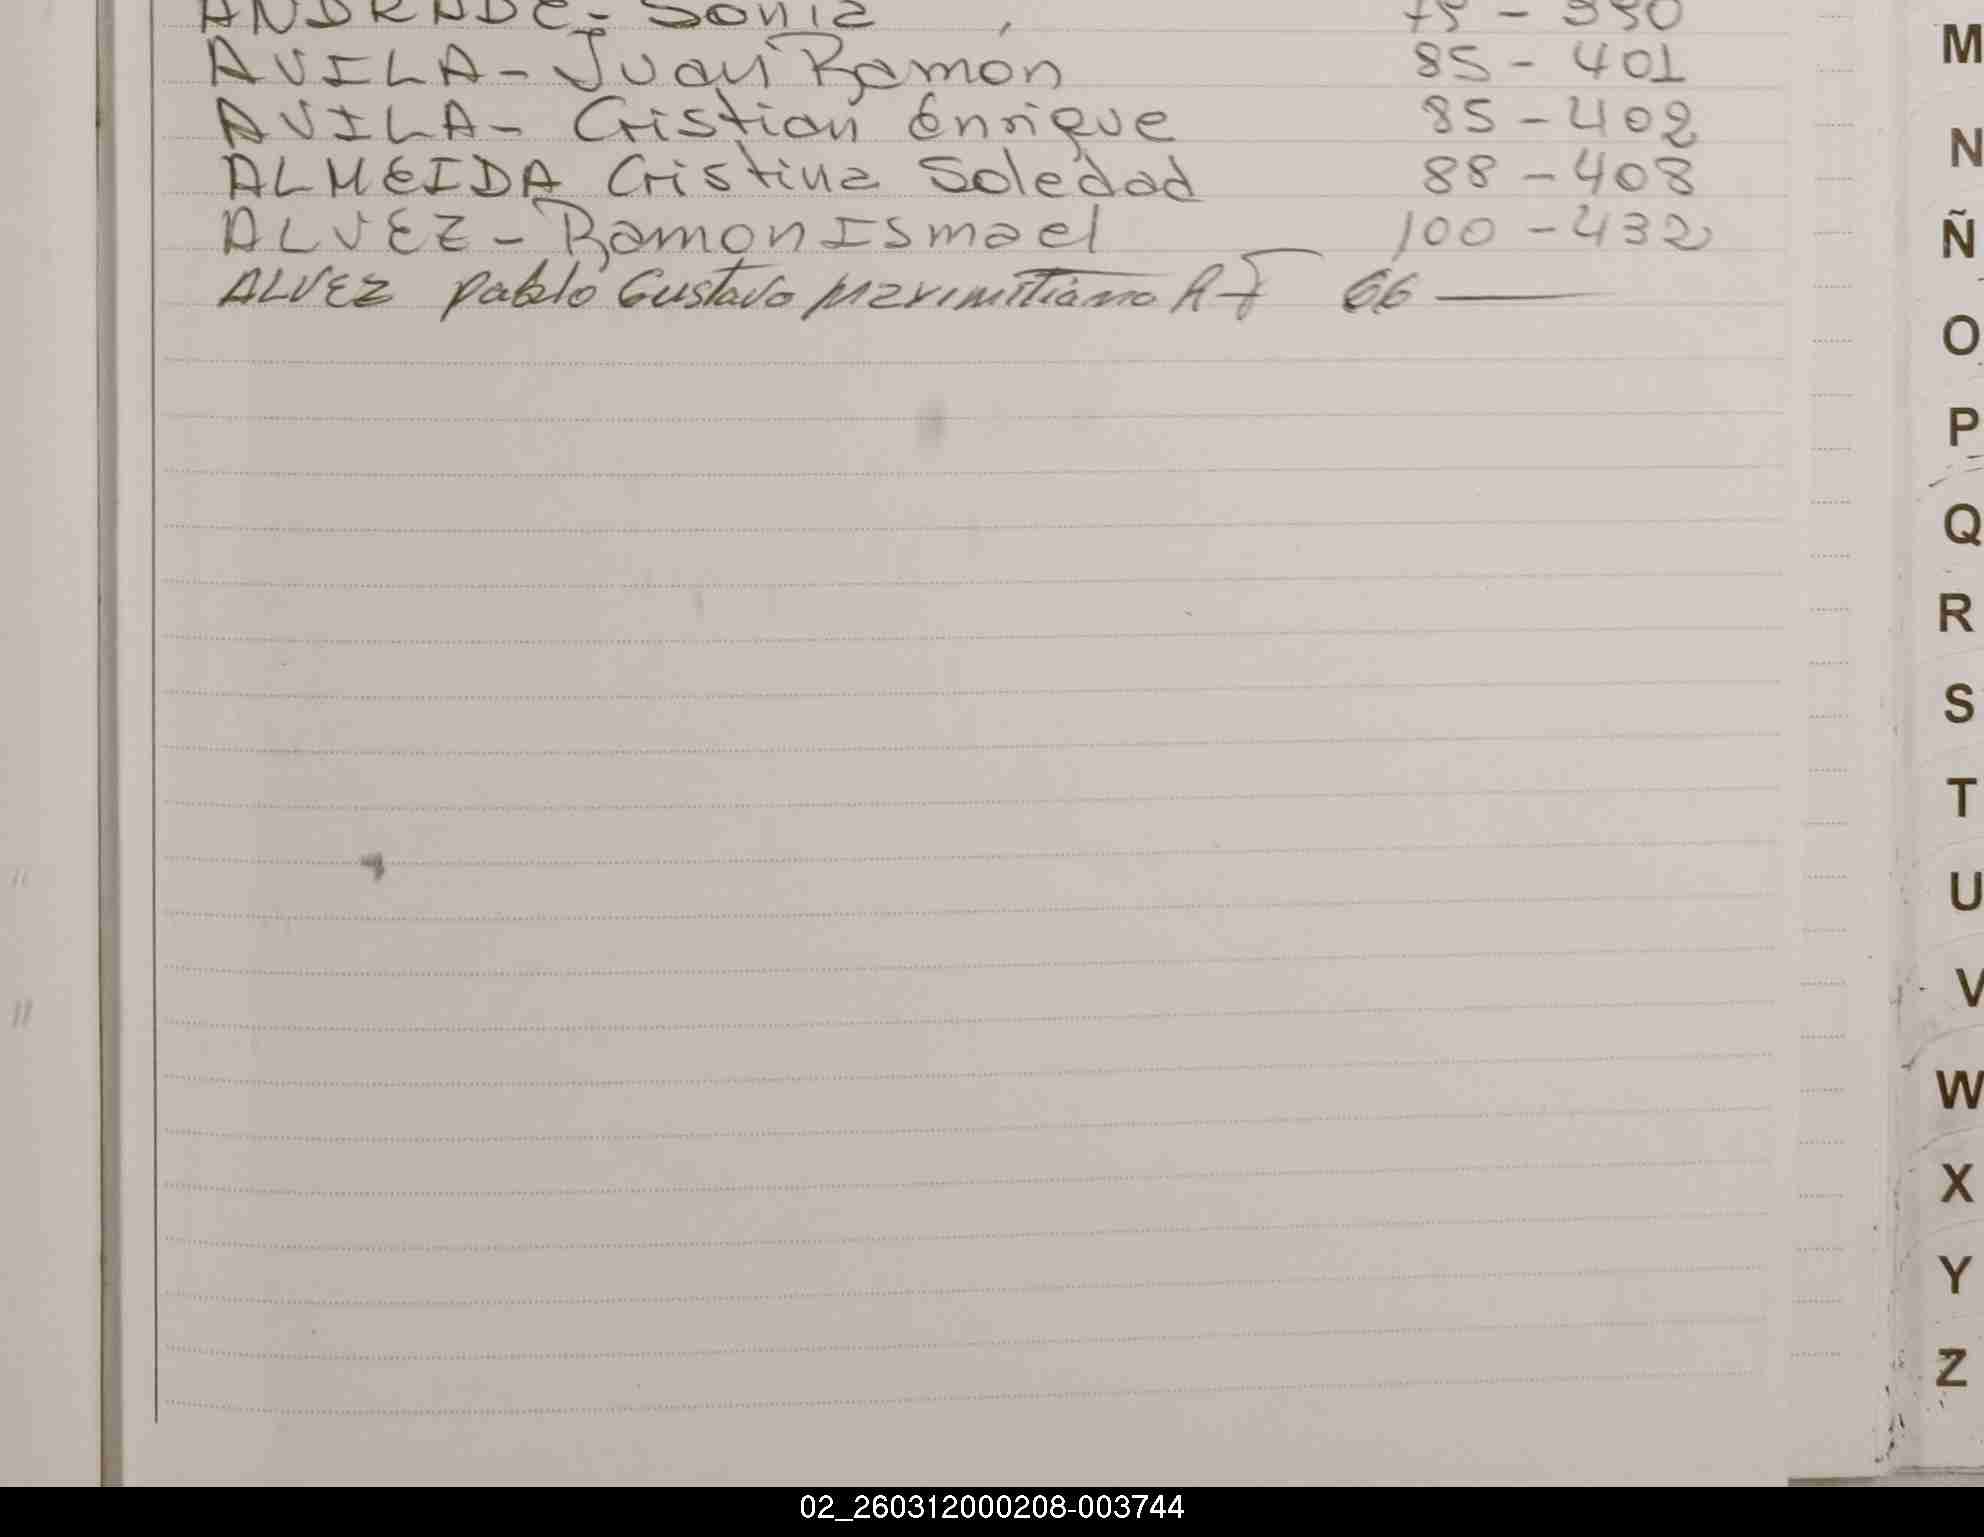 ANDRADE - Sonia 75 - 390
AVILA - Juan Ramón 85 - 401
AVILA - Cristian Enrique 85 - 402
ALMEIDA Cristina Soledad 88 - 408
ALVEZ - Ramon Ismael 100 - 432
ALVEZ pablo Gustavo maximiliano 66 —
M
N
Ñ
O
P
Q
R
S
T
U
V
W
X
Y
Z
02_260312000208-003744